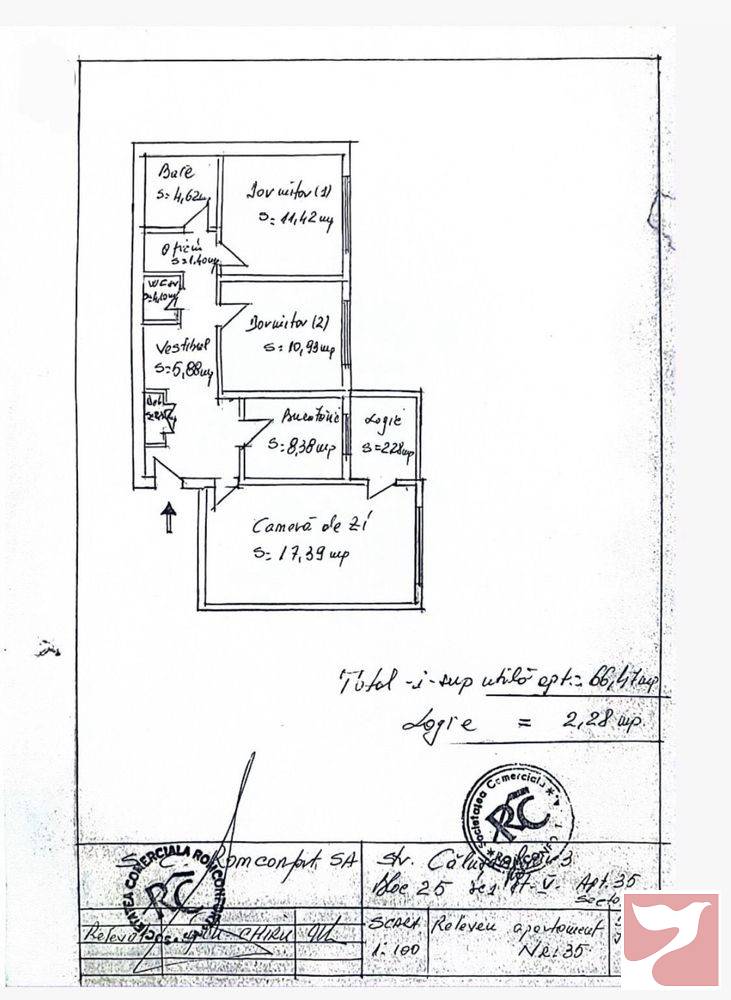 Baie
S=4,62mp
Dormitor (1)
S=11,42mp
Oficiu
S=1.40mp
WC
S=1,10mp
Dormitor (2)
S=10,93mp
Vestibul
S=5,88mp
Bucătărie
S=8,38mp
Logie
S=2,28mp
Cameră de zi
S=17,39mp
Total-i-sup utilă apt.=66,47mp
Logie = 2,28 mp.
Societatea Comerciala
RC
S.C. Romconfort SA
SOCIETATEA COMERCIALA ROMCONFORT
RC
str.
Bloc 25 Et. V. Apt. 35
Relevat
CHIRU
SCARA
1:100
Releveu apartament
Nr: 35